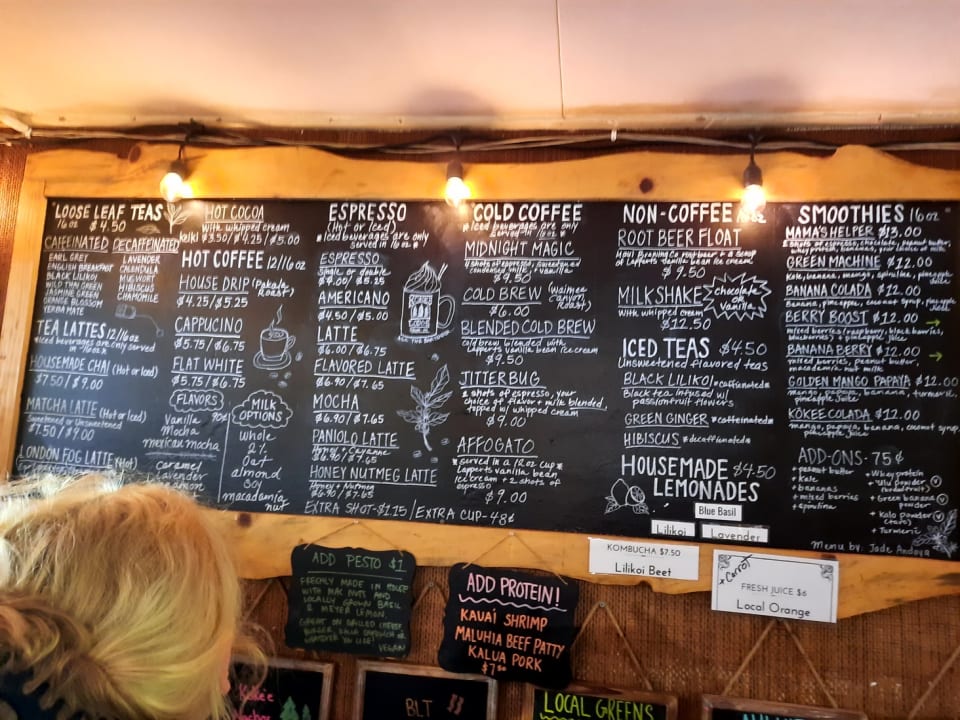 LOOSE LEAF TEAS
16 oz $4.50
CAFFEINATED DECAFFEINATED
EARL GREY
ENGLISH BREAKFAST
BLACK LILIKOI
WILD THAI GREEN
JASMINE GREEN
ORANGE BLOSSOM
YERBA MATE
LAVENDER
CALENDULA
MUGWORT
HIBISCUS
CHAMOMILE
TEA LATTES 12/16oz
*iced beverages are only served
in 16oz*
HOUSEMADE CHAI (Hot or Iced)
$7.50/$9.00
MATCHA LATTE (Hot or Iced)
Sweetened or Unsweetened
$7.50/$9.00
LONDON FOG LATTE (Hot)
HOT COCOA
with whipped cream
keiki $3.50/$4.25/$5.00
HOT COFFEE 12/16oz
HOUSE DRIP (Pakala Roast)
$4.25/$5.25
CAPPUCINO
$5.75/$6.75
FLAT WHITE
$5.75/$6.75
FLAVORS 90¢
Vanilla
Mocha
mexican mocha
caramel
MILK OPTIONS
whole
2%
Oat
almond
Soy
macadamia nut
ESPRESSO
(Hot or Iced)
*Iced beverages are only
served in 16oz*
ESPRESSO
Single or double
$4.00/$5.25
AMERICANO
$4.50/$5.00
LATTE
$6.00/$6.75
FLAVORED LATTE
$6.90/$7.65
MOCHA
$6.90/$7.65
PANIOLO LATTE
$6.90/$7.65
HONEY NUTMEG LATTE
Honey + Nutmeg
$6.90/$7.65
EXTRA SHOT-$1.15/EXTRA CUP-48¢
COLD COFFEE
*iced beverages are only
served in 16oz*
MIDNIGHT MAGIC
condensed milk, + vanilla
$9.50
COLD BREW (Waimea Canyon Roast)
$6.00
BLENDED COLD BREW
cold brew blended with
Lapperts vanilla bean ice cream
$9.50
JITTERBUG
2 shots of espresso, your
choice of flavor + milk blended,
topped w/ whipped cream
$9.00
AFFOGATO
*served in a 12oz cup*
Lapperts vanilla bean
ice cream + 2 shots of
espresso
$9.00
NON-COFFEE 16oz
ROOT BEER FLOAT
Maui Brewing Co root beer + a scoop
of Lapperts vanilla bean ice cream
$9.50
MILKSHAKE
with whipped cream
$12.50
chocolate
or
vanilla
ICED TEAS $4.50
Unsweetened flavored teas
BLACK LILIKOI *caffeinated*
Black tea infused w/
passionfruit flavors
GREEN GINGER *caffeinated*
HIBISCUS *decaffeinated*
HOUSEMADE $4.50
LEMONADES
Blue Basil
Lilikoi
Lavender
SMOOTHIES 16oz
MAMA'S HELPER $13.00
2 shots of espresso, chocolate, peanut butter,
GREEN MACHINE $12.00
Kale, banana, mango, spirulina, pineapple juice
BANANA COLADA $12.00
Banana, pineapple, coconut syrup, pineapple juice
BERRY BOOST $12.00
mixed berries (raspberry, blackberries,
blueberries) + pineapple juice
BANANA BERRY $12.00
mixed berries, peanut butter,
macadamia nut milk
GOLDEN MANGO PAPAYA $12.00
mango, papaya, bananas, turmeric,
pineapple juice
KŌKEE COLADA $12.00
mango, papaya, banana, coconut syrup,
pineapple juice
ADD-ONS - 75¢
+ peanut butter
+ Kale
+ bananas
+ mixed berries
+ spirulina
+ Whey protein
+ 'Ulu powder
(breadfruit)
+ Green banana
powder
+ Kalo powder
(taro)
+ Turmeric
Menu by: Jade Andaya
KOMBUCHA $7.50
Lilikoi Beet
*Carrot
FRESH JUICE $6
Local Orange
ADD PESTO $1
FRESHLY MADE IN HOUSE
WITH MAC NUTS AND
LOCALLY GROWN BASIL
& MEYER LEMON.
GREAT ON GRILLED CHEESE,
BURGER, KALUA SANDWICH OR
WHATEVER YOU LIKE!
VEGAN
ADD PROTEIN!
KAUAI SHRIMP
MALUHIA BEEF PATTY
KALUA PORK
$7.50
Kōkeē
Nachos
BLT
LOCAL GREENS